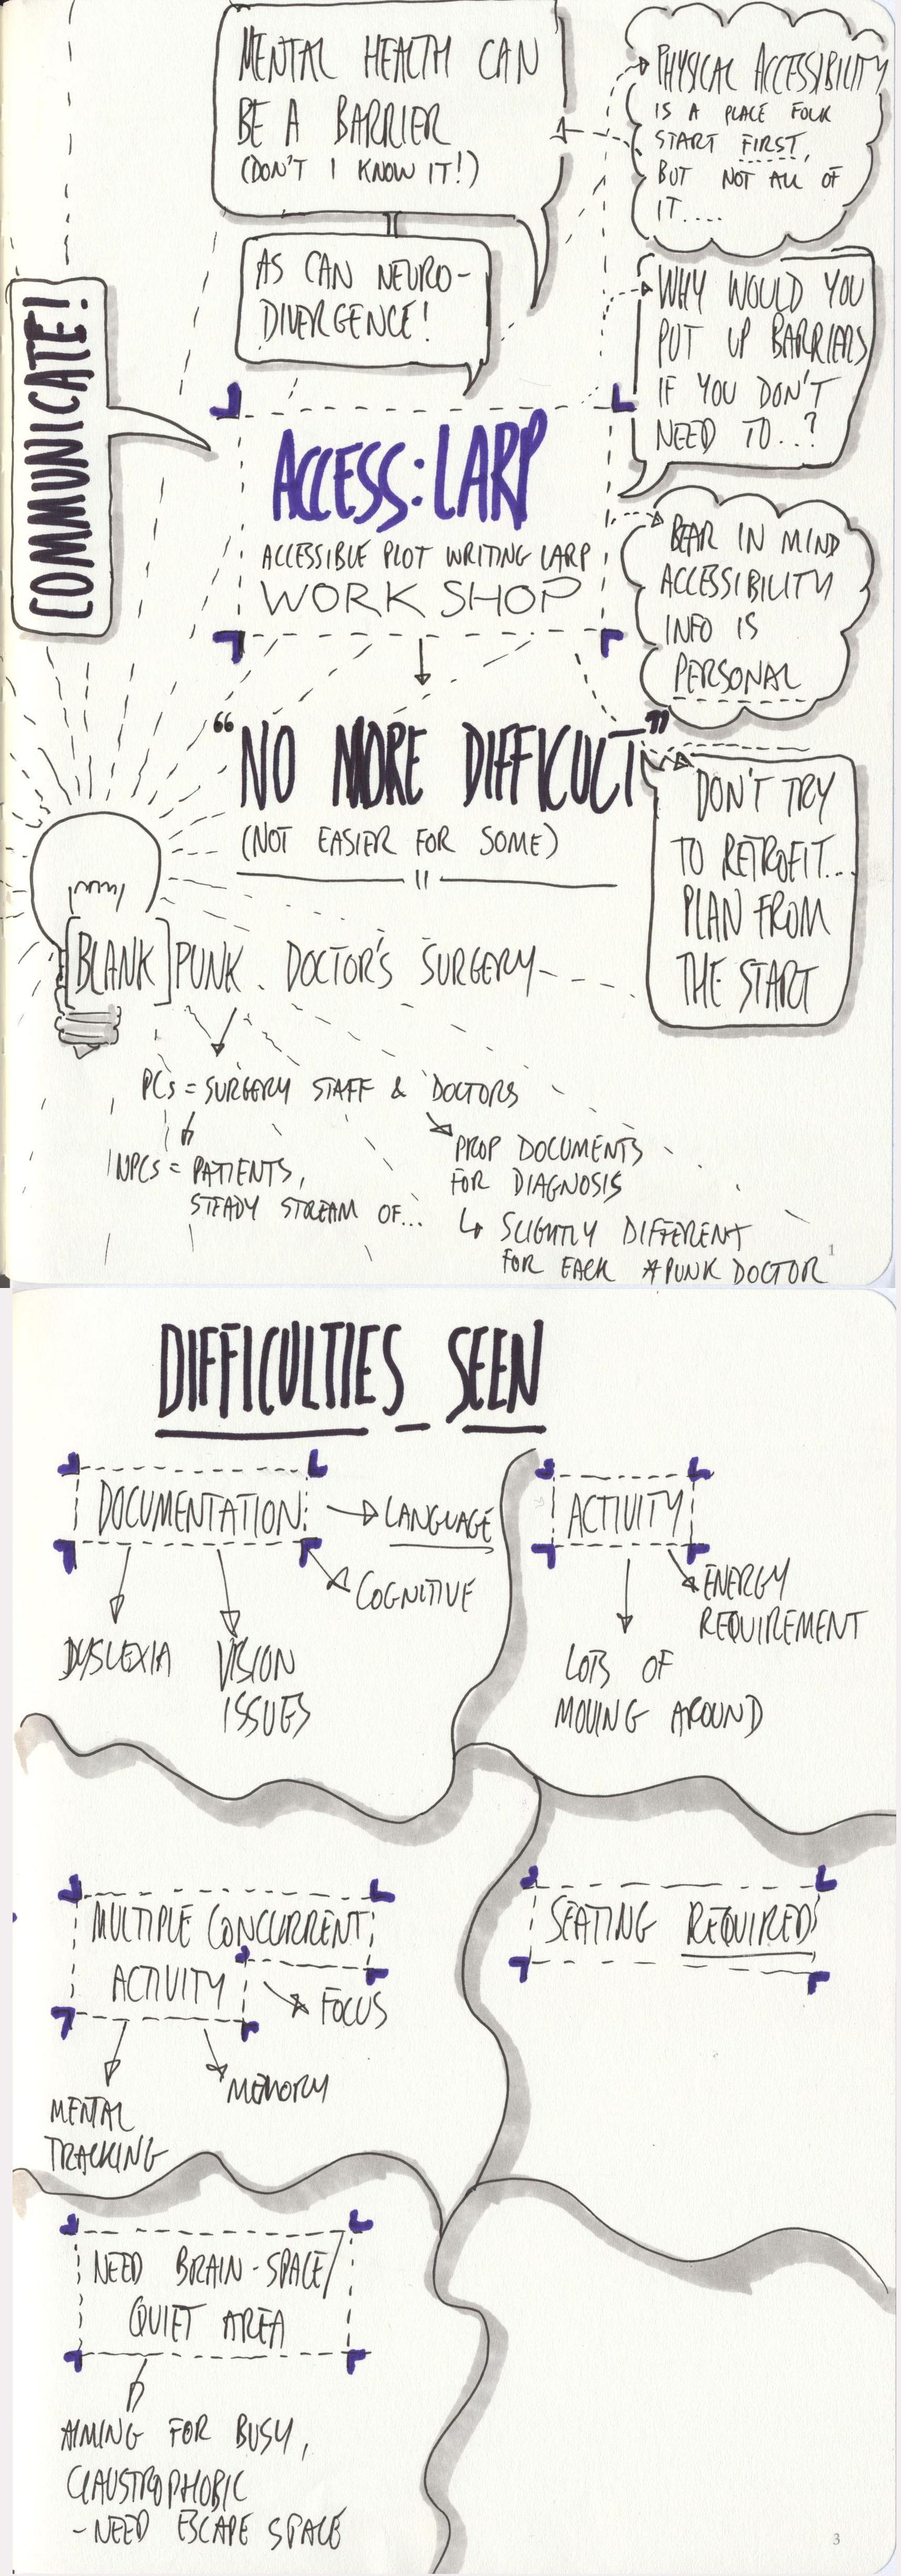 MENTAL HEALTH CAN
BE A BARRIER
(DON'T I KNOW IT!)
AS CAN NEURO-
DIVERGENCE!
PHYSICAL ACCESSIBILITY
IS A PLACE FOLK
START FIRST,
BUT NOT ALL OF
IT....
WHY WOULD YOU
PUT UP BARRIERS
IF YOU DON'T
NEED TO..?
COMMUNICATE!
ACCESS: LARP
ACCESSIBLE PLOT WRITING LARP
WORKSHOP
BEAR IN MIND
ACCESSIBILITY
INFO IS
PERSONAL
"NO MORE DIFFICULT"
(NOT EASIER FOR SOME)
DON'T TRY
TO RETROFIT...
PLAN FROM
THE START
[BLANK] PUNK. DOCTOR'S SURGERY
PCs = SURGERY STAFF & DOCTORS
NPCs = PATIENTS,
STEADY STREAM OF...
PROP DOCUMENTS
FOR DIAGNOSIS
↳ SLIGHTLY DIFFERENT
FOR EACH *PUNK DOCTOR
1
DIFFICULTIES SEEN
DOCUMENTATION
LANGUAGE
COGNITIVE
DYSLEXIA
VISION
ISSUES
ACTIVITY
ENERGY
REQUIREMENT
LOTS OF
MOVING AROUND
MULTIPLE CONCURRENT
ACTIVITY
FOCUS
MEMORY
MENTAL
TRACKING
SEATING REQUIRED
NEED BRAIN-SPACE/
QUIET AREA
AIMING FOR BUSY,
CLAUSTROPHOBIC
- NEED ESCAPE SPACE
3